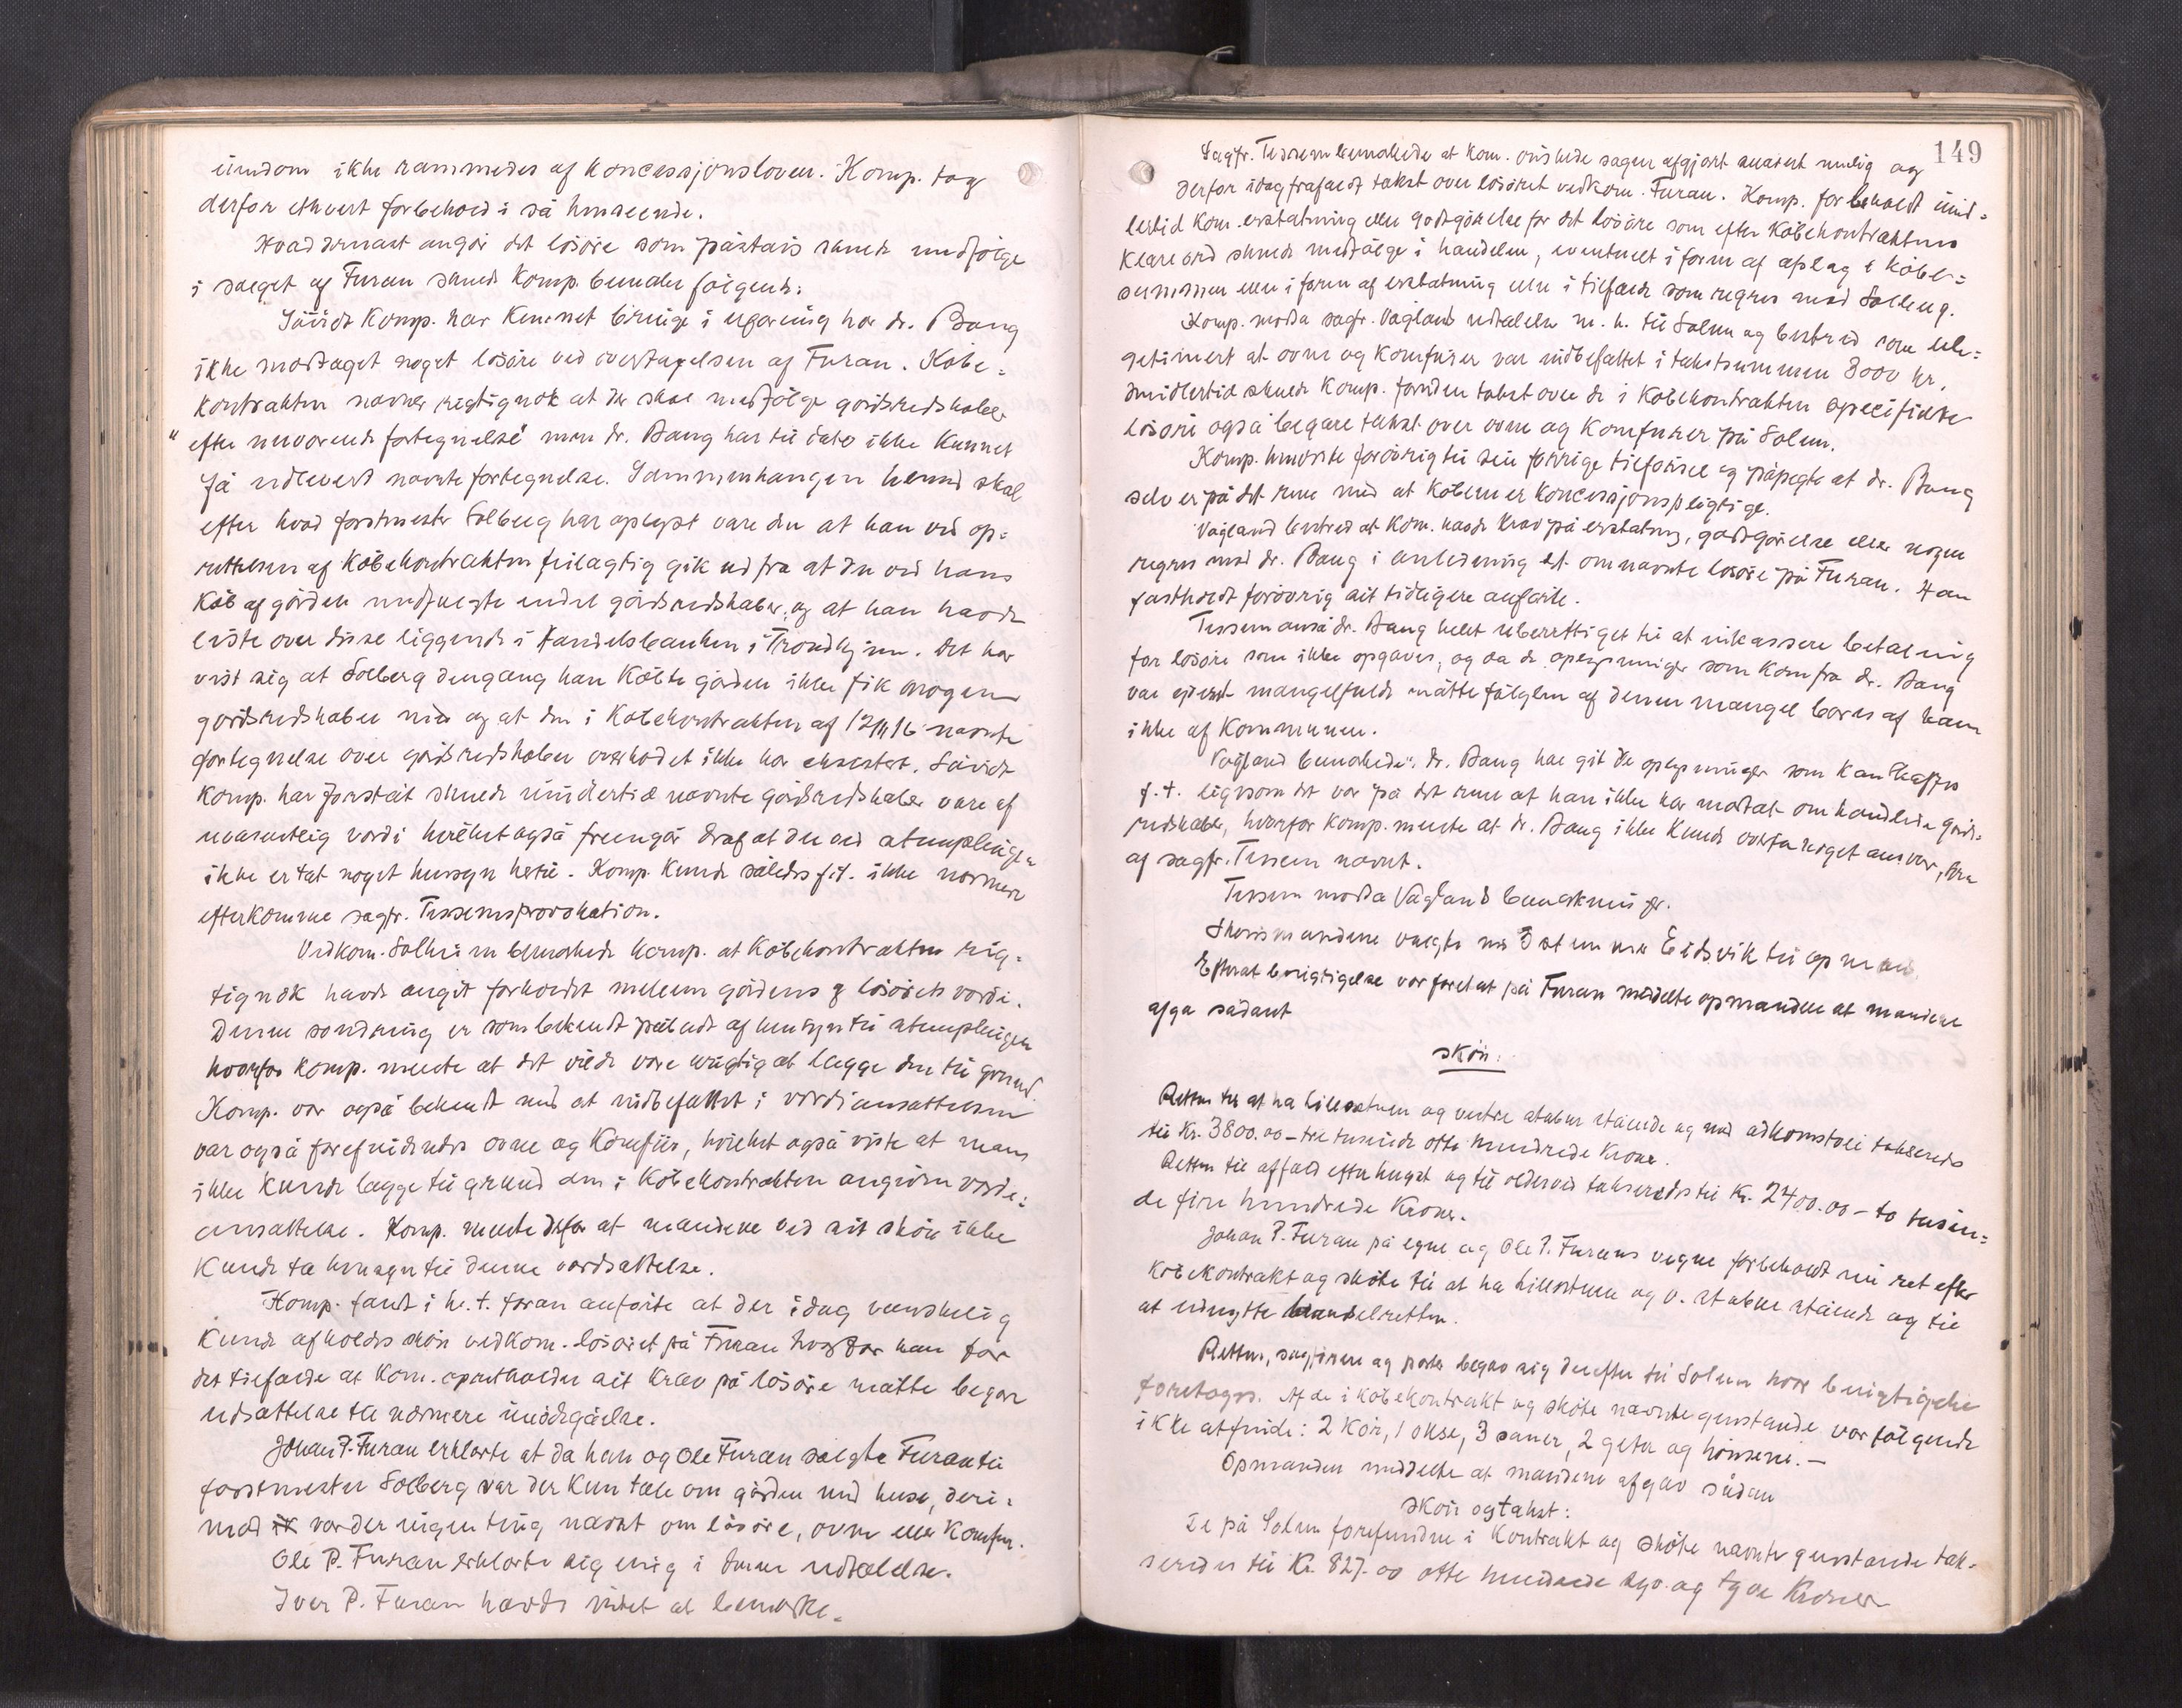 eiendom ikke rammedes af koncessjonsloven. Komp. tog
derfor ethvert forbehold i så henseende.
Hvad dernæst angår det løsøre som påståes skulde medfølge
i salget af Furan skulde Komp. bemærke følgende:
Såvidt Komp. har kunnet bringe i erfaring har dr. Bang
ikke mottaget noget løsøre ved overtagelsen af Furan. Købe-
kontrakten nævner rigtignok at der skal medfølge gårdsredskaber
"efter nuværende fortegnelse" men dr. Bang har til dato ikke kunnet
få udlevert nævnte fortegnelse. Sammenhængen hermed skal
efter hvad forstmester Solberg har oplyst være den at han ved op-
rettelsen af købekontrakten feilagtig gik ud fra at der ved hans
køb af gården medfulgte endel gårdsredskaber, og at han havde
liste over disse liggende i Handelsbanken i Trondhjem. Det har
vist sig at Solberg dengang han købte gården ikke fik nogen
gårdsredskaber med og at den i købekontrakten af 12/11 16 nævnte
fortegnelse over gårdsredskaber overhodet ikke har eksistert. Såvidt
Komp. har forståt skulde imidlertid nævnte gårdsredskaber være af
uvæsentlig værdi hvilket også fremgår deraf at der ved stemplingen
ikke er tat noget hensyn hertil. Komp. kunde således f.t. ikke nærmere
efterkomme sagfr. Tessems provokation.
Vedkom. Solheim bemærkede Komp. at købekontrakten rig-
tignok havde angit forholdet mellem gårdens & løsørets værdi.
Denne sondring er som bekendt påbudt af hensyn til stemplingen
hvorfor Komp. mente at det vilde være urigtig at lægge den til grund.
Komp. var også bekendt med at indbefattet i værdiansættelsen
var også forefindendes ovne og komfur, hvilket også viste at man
ikke kunde lægge til grund den i købekontrakten angivne værdi-
ansættelse. Komp. mente derfor at mændene ved sit skøn ikke
kunde ta hensyn til denne værdsættelse.
Komp. fandt i h. t. foran anførte at der idag vanskelig
kunde afholdes skøn vedkom. løsøret på Furan hvorfor han for
det tilfælde at Kom. opretholder sit krav på løsøre måtte begære
udsættelse til nærmere imødegåelse.
Johan P. Furan erklærte at da han og Ole Furan solgte Furan til
forstmester Solberg var der kun tale om gården med huse, deri-
mod var der ingenting nævnt om løsøre, ovne eller komfur.
Ole P. Furan erklærte sig enig i denne udtalelse.
Iver P. Furan havde intet at bemærke.
149
Sagfr. Tessem bemærkede at Kom. ønskede sagen afgjort snarest mulig og
derfor idag frafaldt takst over løsøret vedkom. Furan. Komp. forbeholdt imid-
lertid Kom. erstatning eller godtgørelse for det løsøre som efter købekontraktens
klare ord skulde medfølge i handelen, eventuelt i form af afslag i købe-
summen eller i form af erstatning eller i tilfælde som regres mod Solberg.
Komp. modsa sagfr. Vågland udtalelse m. h. til Solem og bestred som ube-
getimert at ovne og komfurer var indbefattet i takstsummen 8000 kr.
Imidlertid skulde Komp. foruden takst over de i købekontrakten specifiserte
løsøre også begære takst over ovne og komfurer på Solem.
Komp. henviste forøvrig til sin forrige tilførsel og påpegte at dr. Bang
selv er på det rene med at køberne er koncessjonspligtige.
Vågland bestred at Kom. havde krav på erstatning, godtgørelse eller nogen
regres mod dr. Bang i anledning af omnævnte løsøre på Furan. Han
fastholdt forøvrig sit tidligere anførte.
Tessem anså dr. Bang helt uberettiget til at inkassere betaling
for løsøre som ikke opgaves, og da de oplysninger som kom fra dr. Bang
var ytterst mangelfulde måtte følgen af denne mangel bæres af ham
ikke af kommunen.
Vågland bemærkede: Dr. Bang har git de oplysninger som kan skaffes
f. t. ligesom det var på det rene at han ikke har mottat omhandlede gårds-
redskaber, hvorfor Komp. mente at dr. Bang ikke kunde overta noget ansvar, som
af sagfr. Tessem nævnt.
Tessem modsa Vågland bemærkninger.
Skønsmændene valgte Eidsvik til opmand.
Efterat besigtigelse var foretat på Furan meddelte opmanden at mændene
afga sådant
skøn:
Retten til at ha lillestuen og vestre stabur stående og med adkomstvei takseredes
til Kr. 3800.00 – tre tusinde otte hundrede kroner.
Retten til affald efter hugst og til oldervid takseredes til Kr. 2400.00 – to tusin-
de fire hundrede kroner.
Johan P. Furan på egne og Ole P. Furans vegne forbeholdt sin ret efter
købekontrakt og skøte til at ha lillestuen og v. stabur stående og til
at utnytte handelsretten.
Retten, sagførere og parter begav sig derefter til Solem hvor besigtigelse
foretoges. Af de i købekontrakt og skøte nævnte genstande var følgende
ikke at finde: 2 kør, 1 okse, 3 sauer, 2 geter og hønseri. –
Opmanden meddelte at mændene afgav sådan
skøn og takst:
De på Solem forefundne i kontrakt og skøte nævnte genstande tak-
seredes til Kr. 827.00 otte hundrede syv og tyve kroner